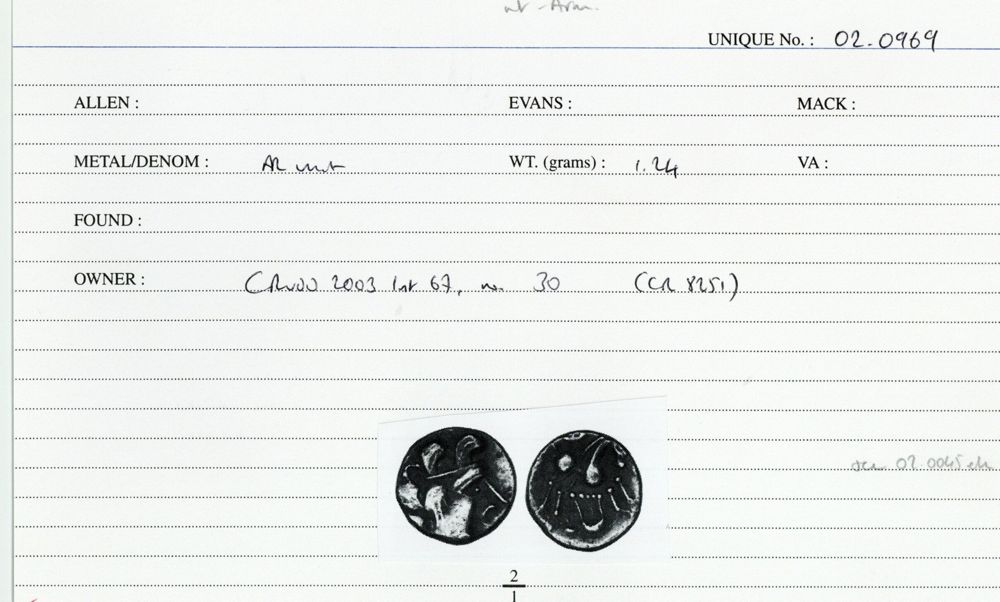 UNIQUE No. : 02.0969
ALLEN : EVANS : MACK :
METAL/DENOM : AR unit WT. (grams) : 1.24 VA :
FOUND :
OWNER : 2003 list 67, no. 30 (CR 8251)
see 02.0045
2
1